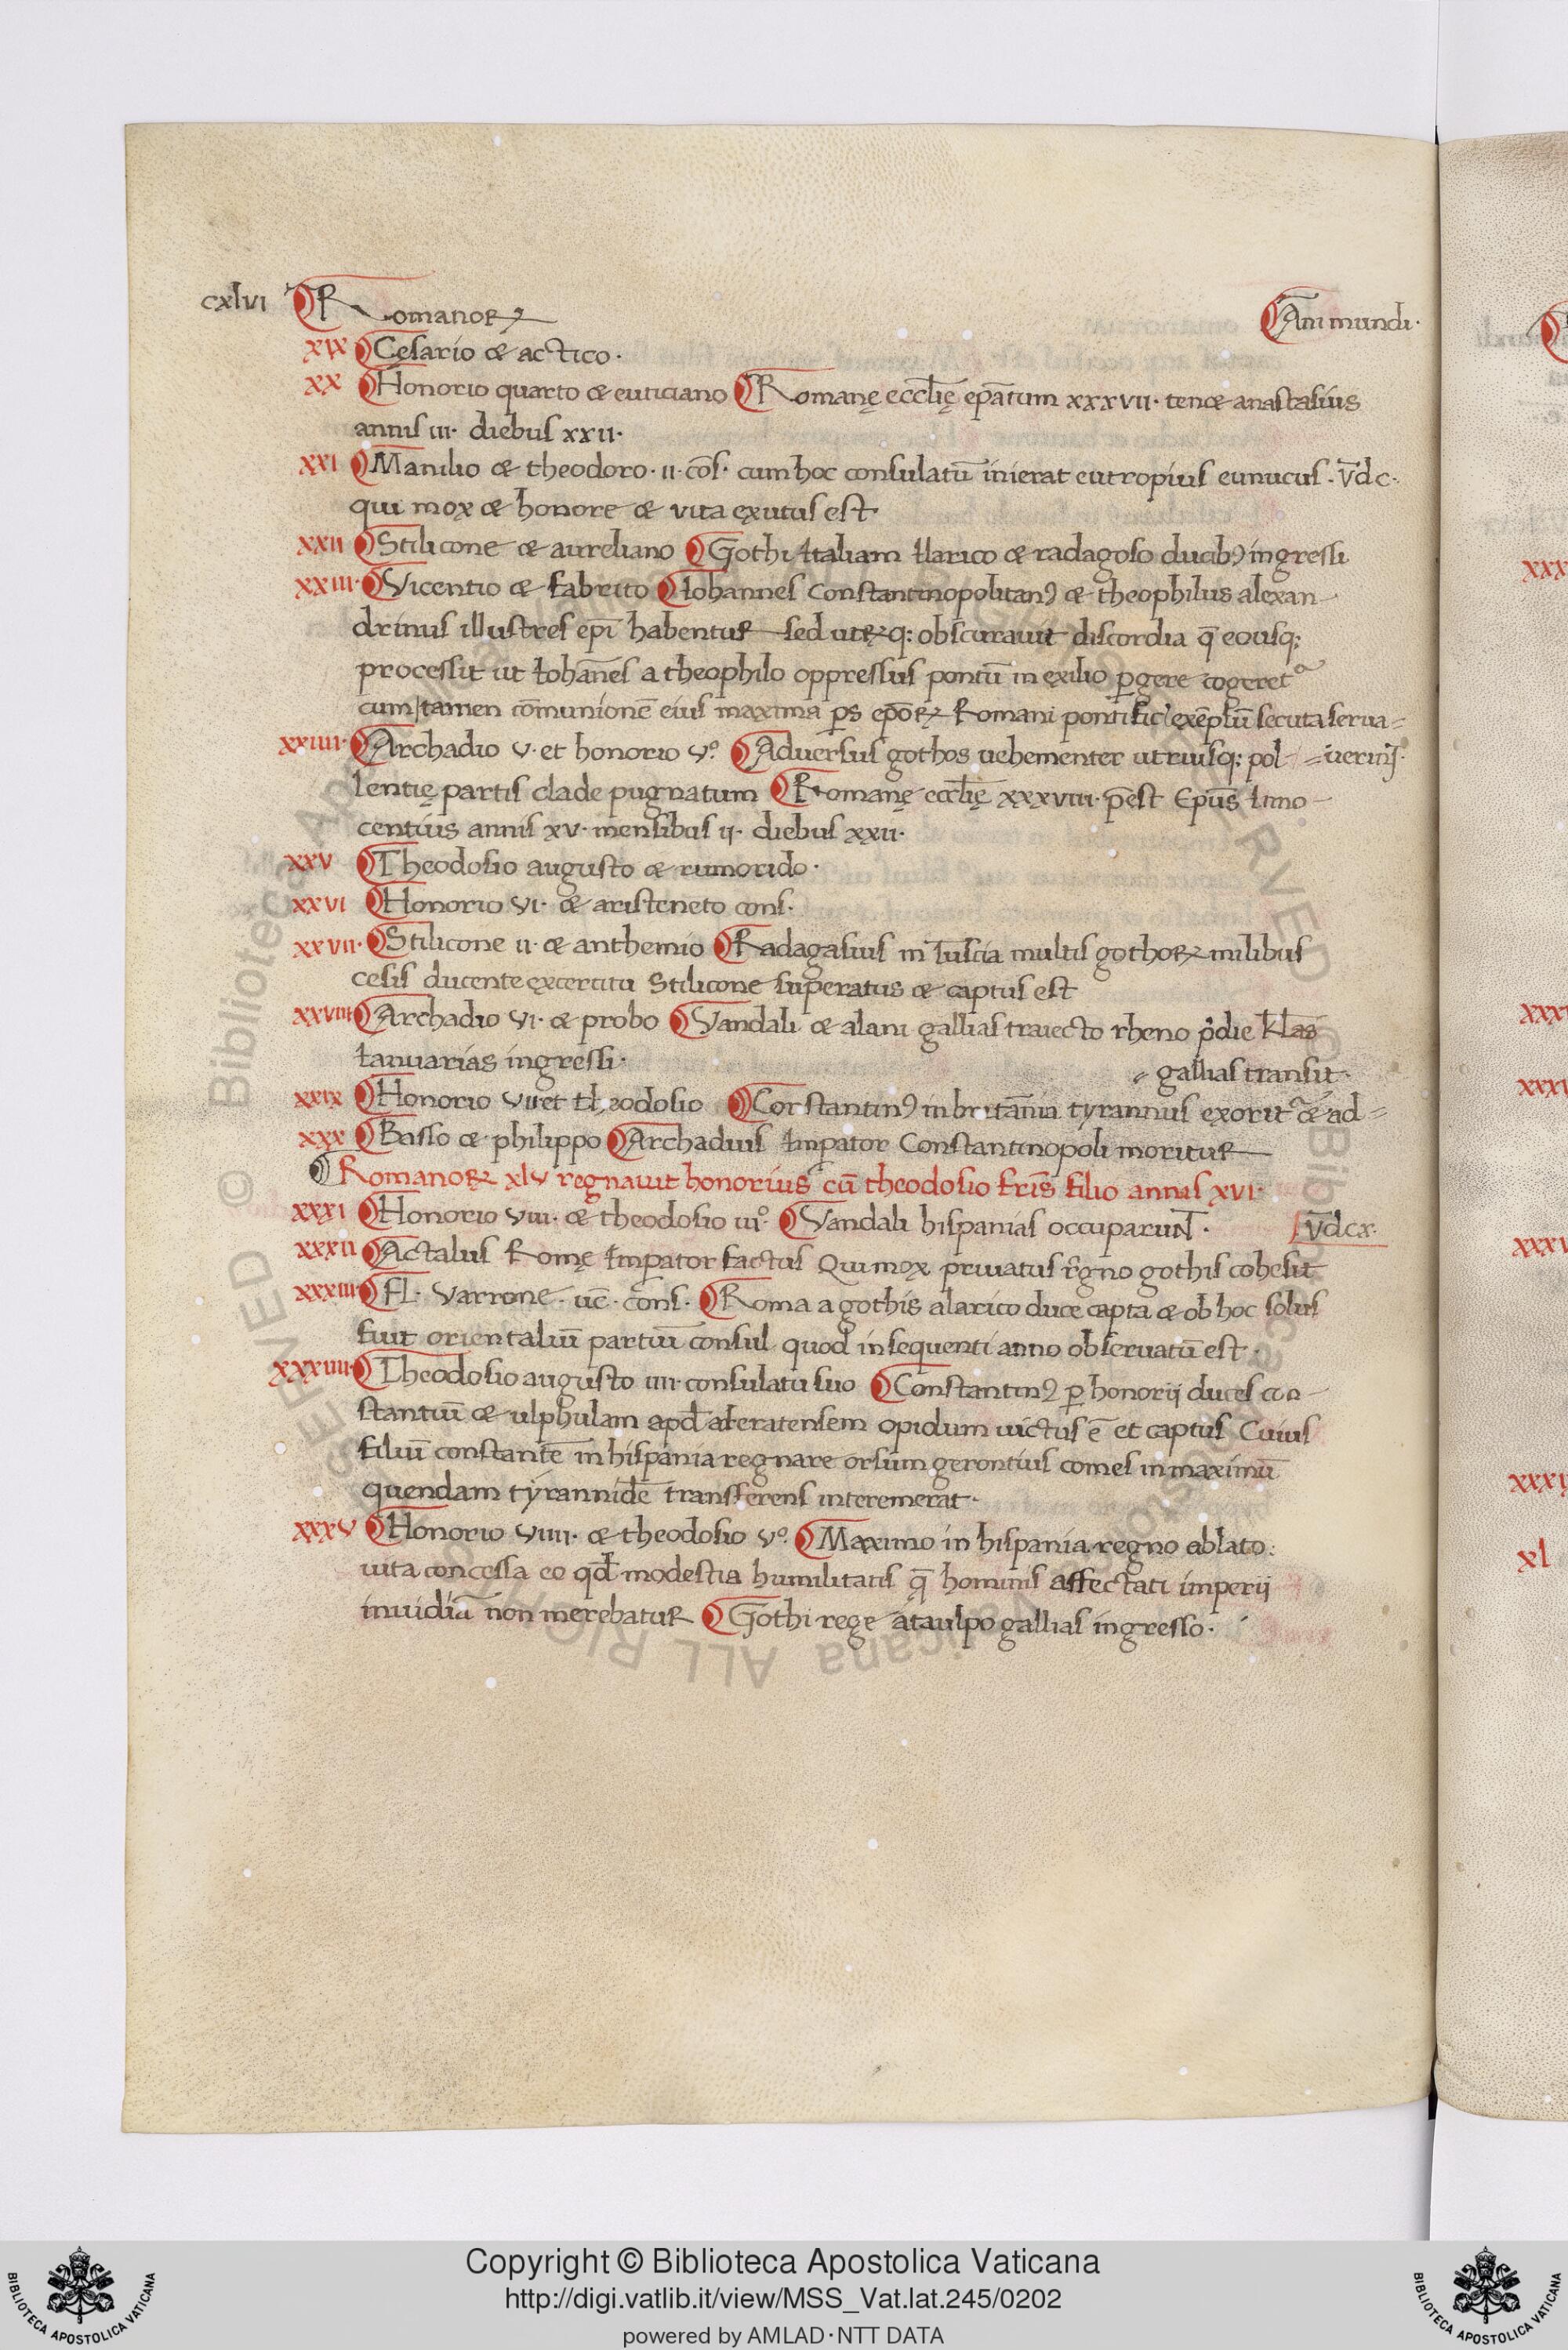 cxlvi Romanoꝝ An mundi·
xix Cęsario & actico·
xx Honorio quarto & euticiano Romanę eccl̄ię ep̄atum xxxvii· ten& anastasius
annis iii· diebus xxii·
xxi Manilio & theodoro· ii· cōs· cum hoc consulatū inierat eutropius eunucus· v̄dc·
qui mox & honore & vita exutus est·
xxii Stilicone & aureliano Gothi Italiam Ilarico & radagoso ducibꝰ ingressi
xxiii· Vicentio & fabrito Iohannes Constantinopolitanꝰ & theophilus alexan-
drinus illustres ep̄i habentur sed utrꝝq: obscurauit discordia q̄ eousq:
processit ut Iohānes a theophilo oppressus pontū in exilio ꝑgere cogeret
cum tamen cōmunionē eius maxima ꝑs ep̄oꝝ Romani pontific̄ exēplū secuta serua=
xxiiii· Archadio v· et honorio v° Aduersus gothos uehementer utriusq: pol- =uerint·
lentię partis clade pugnatum Romanę eccl̄ię xxxviii· p̄est Ep̄us Inno-
centius annis xv· mensibus ii· diebus xxii·
xxv Theodosio augusto & rumorido·
xxvi Honorio vi· & aristeneto cons·
xxvii· Stilicone ii· & anthemio Radagasius in Tuscia multis gothoꝝ milibus
cesis ducente exercitu Stilicone superatus & captus est
xxviii Archadio vi· & probo Vandali & alani gallias traiecto rheno p̓die kl̄as
Ianuarias ingressi· =gallias transiit·
xxix Honorio vii et theodosio Constantinꝰ in britānia tyrannus exorit & ad=
xxx Basso & philippo Archadius Imꝑator Constantinopoli moritur
Romanoꝝ xlv regnauit honorius cū theodosio fr̄is filio annis xvi·
xxxi Honorio viii· & theodosio iii° Vandali hispanias occuparunt· v̄dcx·
xxxii Actalus Romę Imꝑator factus Qui mox priuatus regno gothis cohesit
xxxiii Fl· Varrone· uc̄· cons· Roma a gothis alarico duce capta & ob hoc solus
fuit orientaliū partiū consul quod in sequenti anno obseruatū est·
xxxiiii· Theodosio augusto iiii· consulatu suo Constantinꝰ ꝑ honorij duces con-
stantiū & ulphulam apd̄ areratensem opidum uictus ē et captus Cuius
filiū constantē in hispania regnare orsum gerontius comes in maximū
quendam tyrannidē transferens interemerat·
xxxv Honorio viiii· & theodosio v° Maximo in hispania regno ablato:
uita concessa eo qd̄ modestia humilitatis q̄ hominis affectati imperij
inuidiā non merebatur Gothi rege ataulpo gallias ingresso·
xxx
xxx
xxx
xxx
xxx
xl
Copyright © Biblioteca Apostolica Vaticana
http://digi.vatlib.it/view/MSS_Vat.lat.245/0202
powered by AMLAD·NTT DATA
BIBLIOTECA APOSTOLICA VATICANA
BIBLIOTECA APOSTOLICA VATICANA